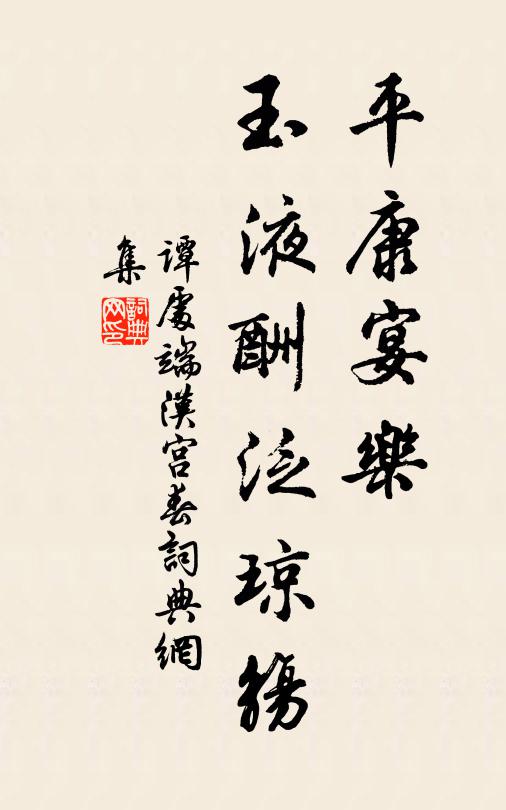 平康宴樂
玉液酬泛琼觴
譚處端漢宮春詞典網
集
詞典網印